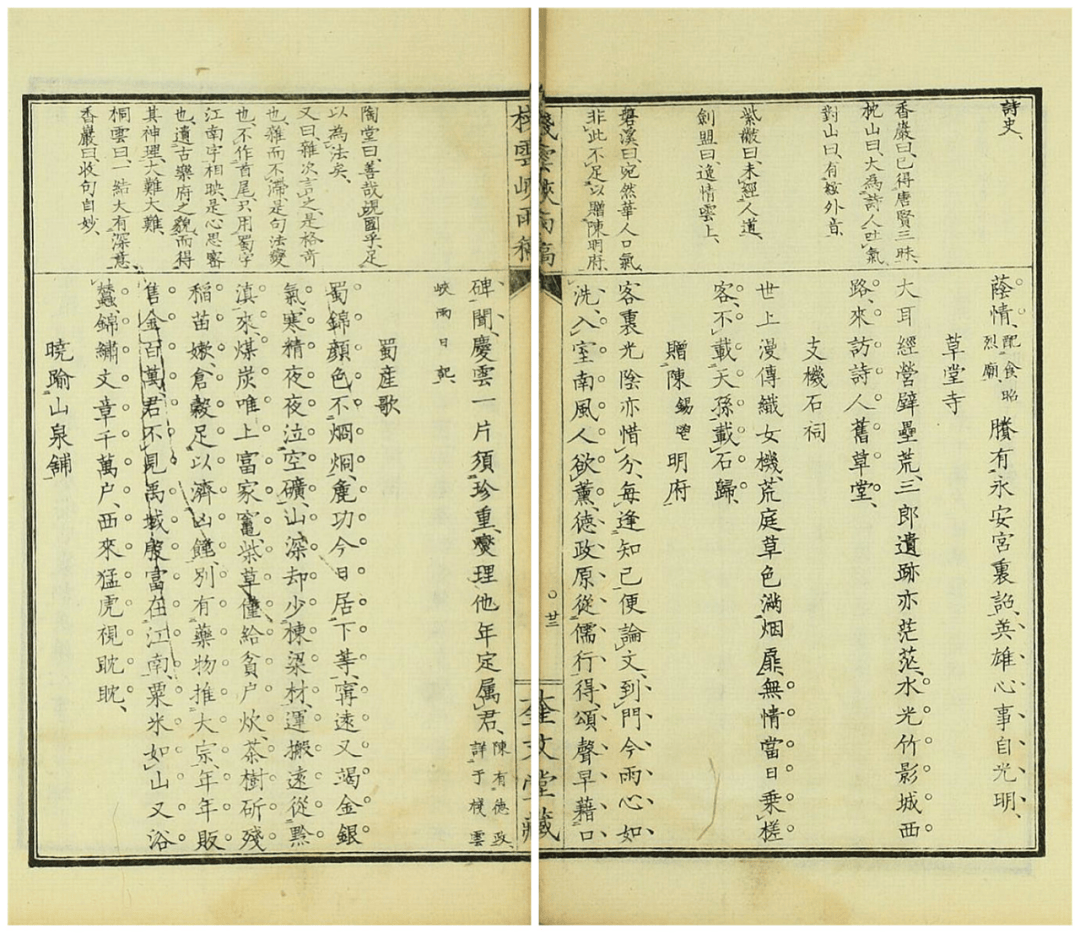 詩史、
香巖曰、已得唐賢三昧、
枕山曰、大為詩人吐氣、
對山曰、有絃外音、
曰、未經人道、
劍盟曰、逸情雲上、
磐溪曰、宛然華人口氣、
非此不足以贈陳明府、
蔭情、配食昭烈廟、賸有永安宮裏詔、英雄心事自光明、
草堂寺
大耳經營壁壘荒、三郎遺跡亦茫茫、水光竹影城西
路、來訪詩人舊草堂、
支機石祠
世上漫傳織女機、荒庭草色滿烟扉、無情當日乘槎
客、不載天孫載石歸、
贈陳錫鬯明府
客裏光陰亦惜分、每逢知己便論文、到門今雨心如
洗、入室南風人欲薰、德政原從儒行得、頌聲早藉口
棧雲峽雨稿
廿三
奎文堂藏
陶堂曰、善哉覘國乎、足
以為法矣、
又曰、雜次言之、是格奇
也、雜而不滯、是句法變
也、不作首尾、只用蜀字
江南字相映、是心思密
也、遺古樂府之貌而得
其神理、大難大難、
桐雲曰、一結大有深意、
香巖曰、收句自妙、
碑聞、慶雲一片須珍重、燮理他年定属君、陳有德政、詳于棧雲
峽雨日記、
蜀產歌
蜀錦顔色不烱烱、麁功今日居下等、寧遠又竭金銀
氣、寒精夜夜泣空礦、山深却少棟梁材、運搬遠從黔
滇來、煤炭唯上富家竈、柴草僅給貧户炊、茶樹斫殘
稻苗嫩、倉穀足以濟凶饉、別有藥物推大宗、年年販
售金百萬、君不見禹域殷富在江南、粟米如山又浴
蠶、錦繡文章千萬户、西來猛虎視眈眈、
曉踰山泉舗